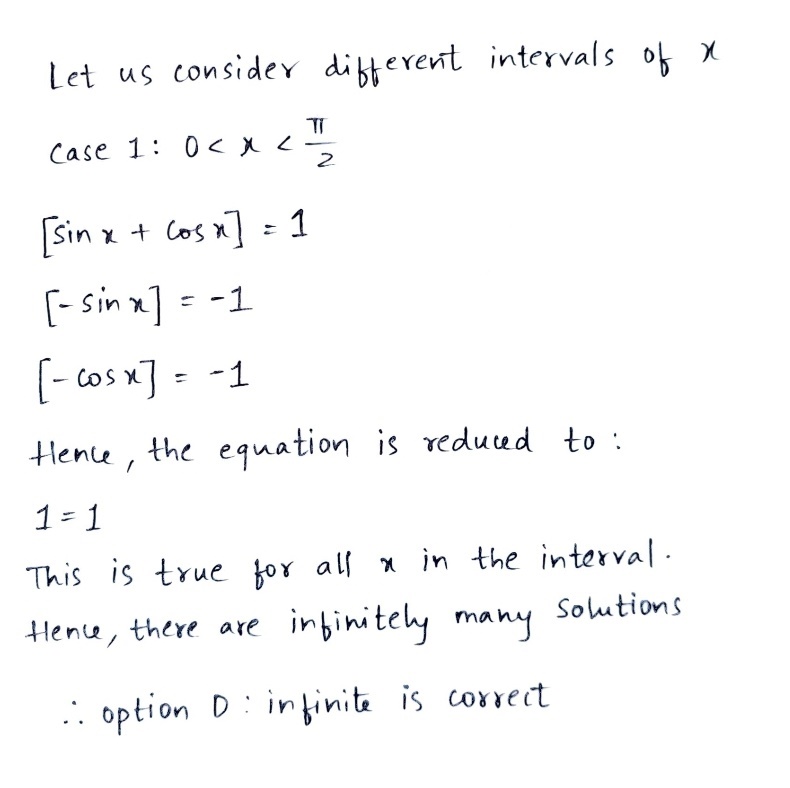 Let us consider different intervals of x
Case 1: 0 < x < π/2
[sin x + cos x] = 1
[- sin x] = -1
[- cos x] = -1
Hence, the equation is reduced to :
1 = 1
This is true for all x in the interval.
Hence, there are infinitely many solutions
∴ option D : infinite is correct